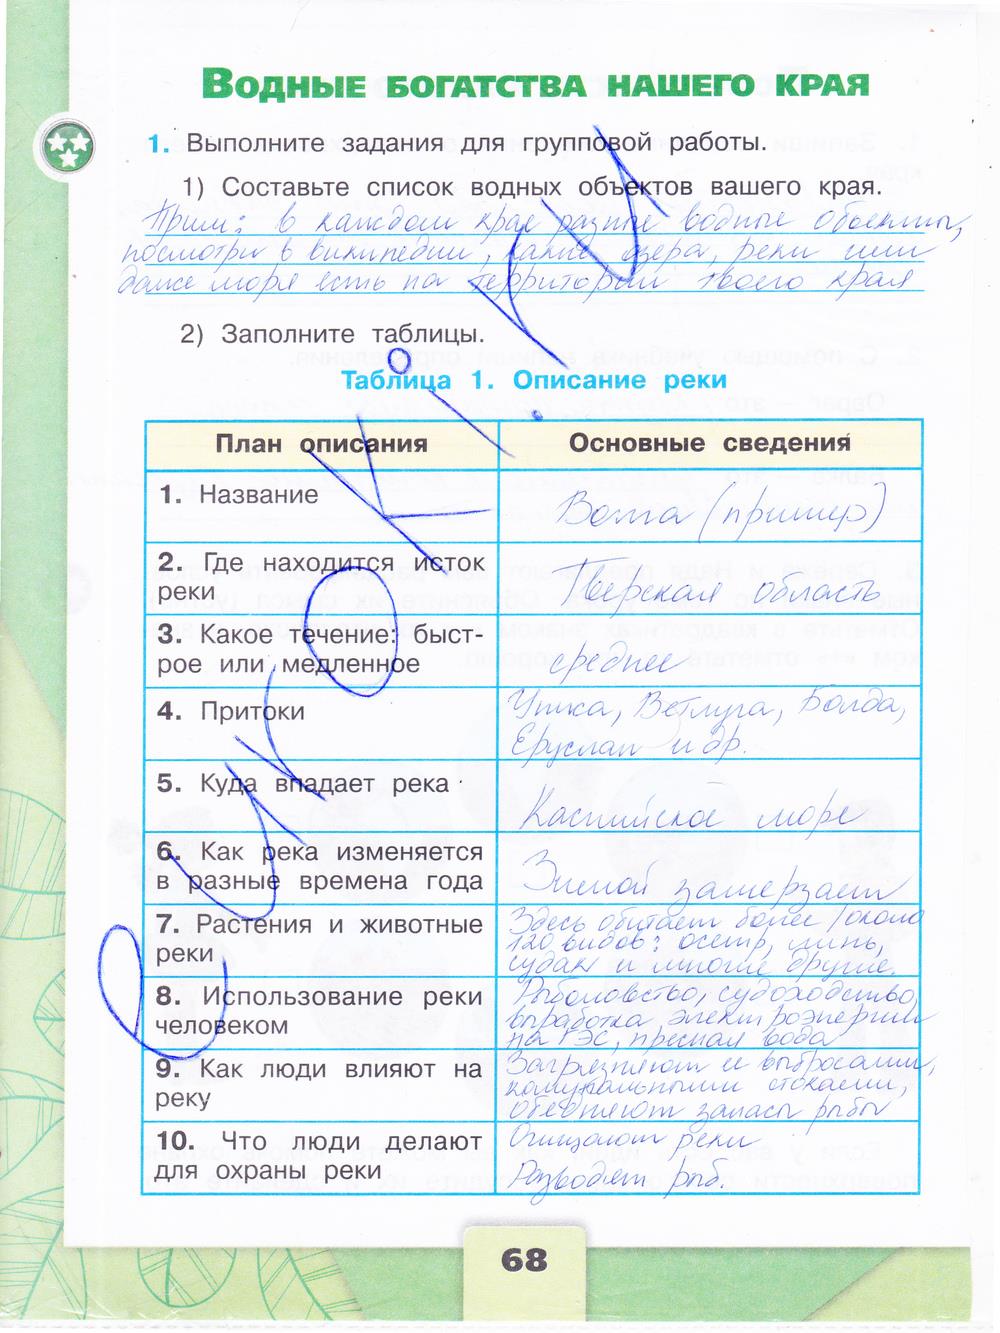 Водные богатства нашего края
1. Выполните задания для групповой работы.
1) Составьте список водных объектов вашего края.
Прим: в каждом крае разные водные объекты,
посмотри в википедии, какие озера, реки или
даже моря есть на территории твоего края
2) Заполните таблицы.
Таблица 1. Описание реки
План описания Основные сведения
1. Название
Волга (пример)
2. Где находится исток
реки
Тверская область
3. Какое течение: быст-
рое или медленное
среднее
4. Притоки
Унжа, Ветлуга, Болда,
Еруслан и др.
5. Куда впадает река
Каспийское море
6. Как река изменяется
в разные времена года
Зимой замерзает
7. Растения и животные
реки
Здесь обитает более /около
120 видов: осетр, линь,
судак и многие другие.
8. Использование реки
человеком
Рыболовство, судоходство,
выработка электроэнергии
на ГЭС, пресная вода
9. Как люди влияют на
реку
Загрязняют ее выбросами,
коммунальными стоками,
обедняют запасы рыбы
10. Что люди делают
для охраны реки
Очищают реки
Разводят рыб.
68